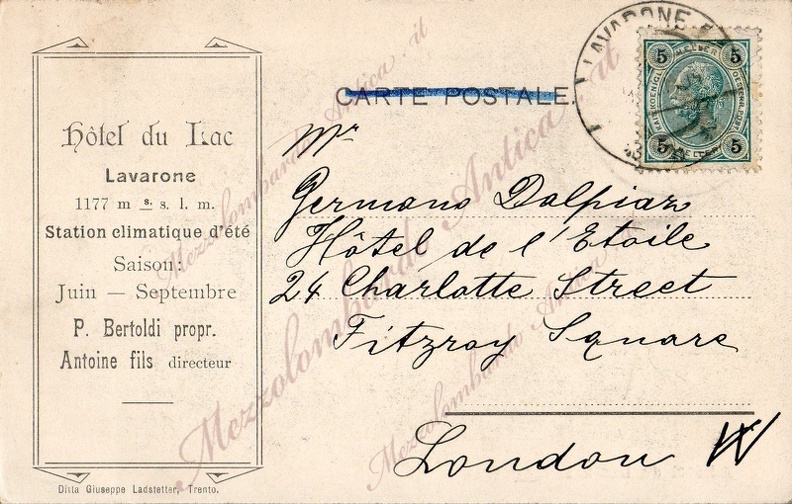 Hôtel du Lac
Lavarone
1177 m s. s. l. m.
Station climatique d'été
Saison:
Juin — Septembre
P. Bertoldi propr.
Antoine fils directeur
Ditta Giuseppe Ladstetter, Trento.
CARTE POSTALE.
LAVARONE
5 5
5 5
Mr
Germano Dalpiaz
Hôtel de l'Etoile
24 Charlotte Street
Fitzroy Square
London W
Mezzolombardo Antica .it
Mezzolombardo Antica .it
Mezzolombardo Antica